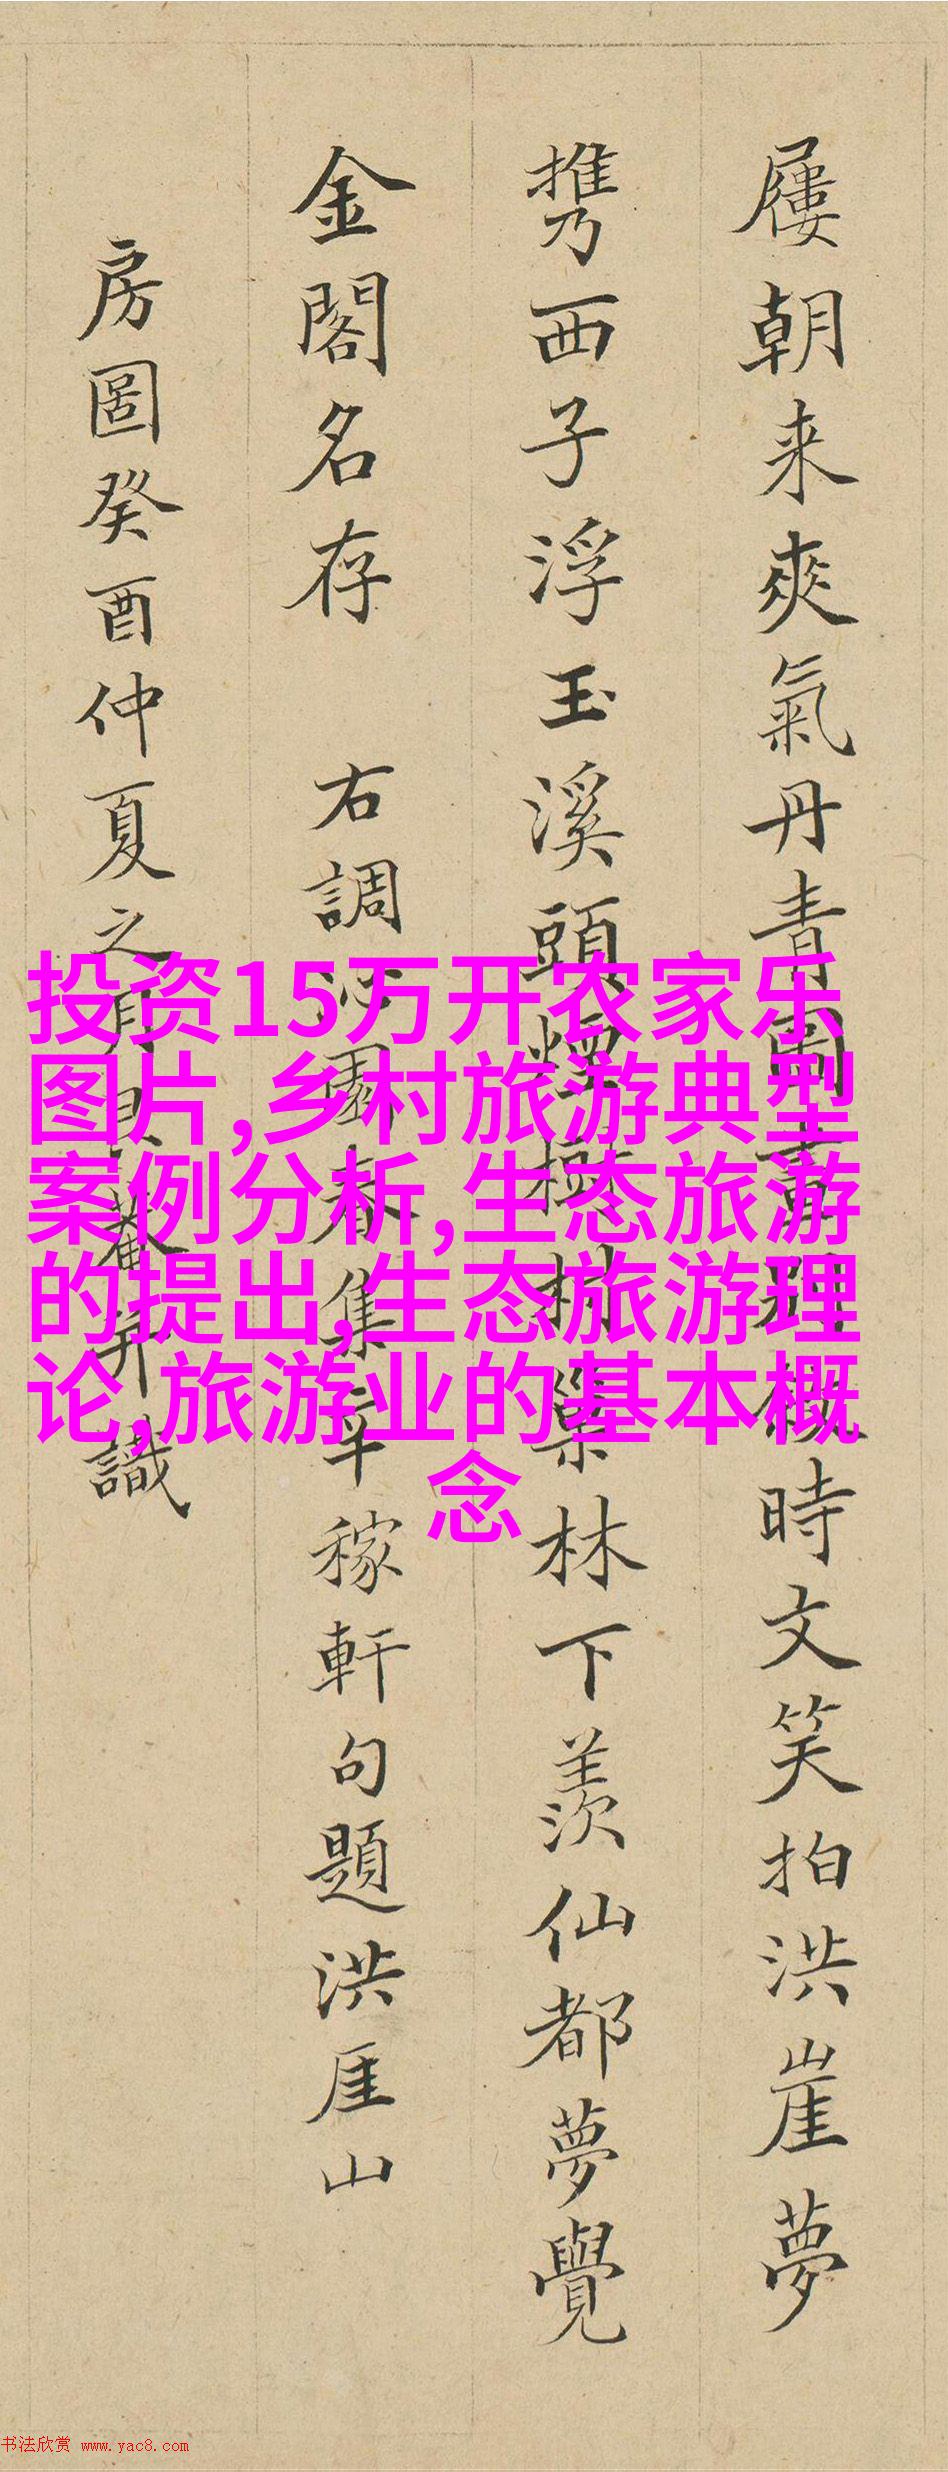 屢朝来爽氣丹青圖畫别時文笑拍洪崖夢
携西子浮玉溪頭煙村巢林下羨仙都夢覺
金閣名存 右調沁園春集辛稼軒句題洪厓山
房圖癸酉仲夏之月菴并識
投资15万开农家乐
图片,乡村旅游典型
案例分析,生态旅游
的提出,生态旅游理
论,旅游业的基本概
念
书法欣赏 www.yac8.com